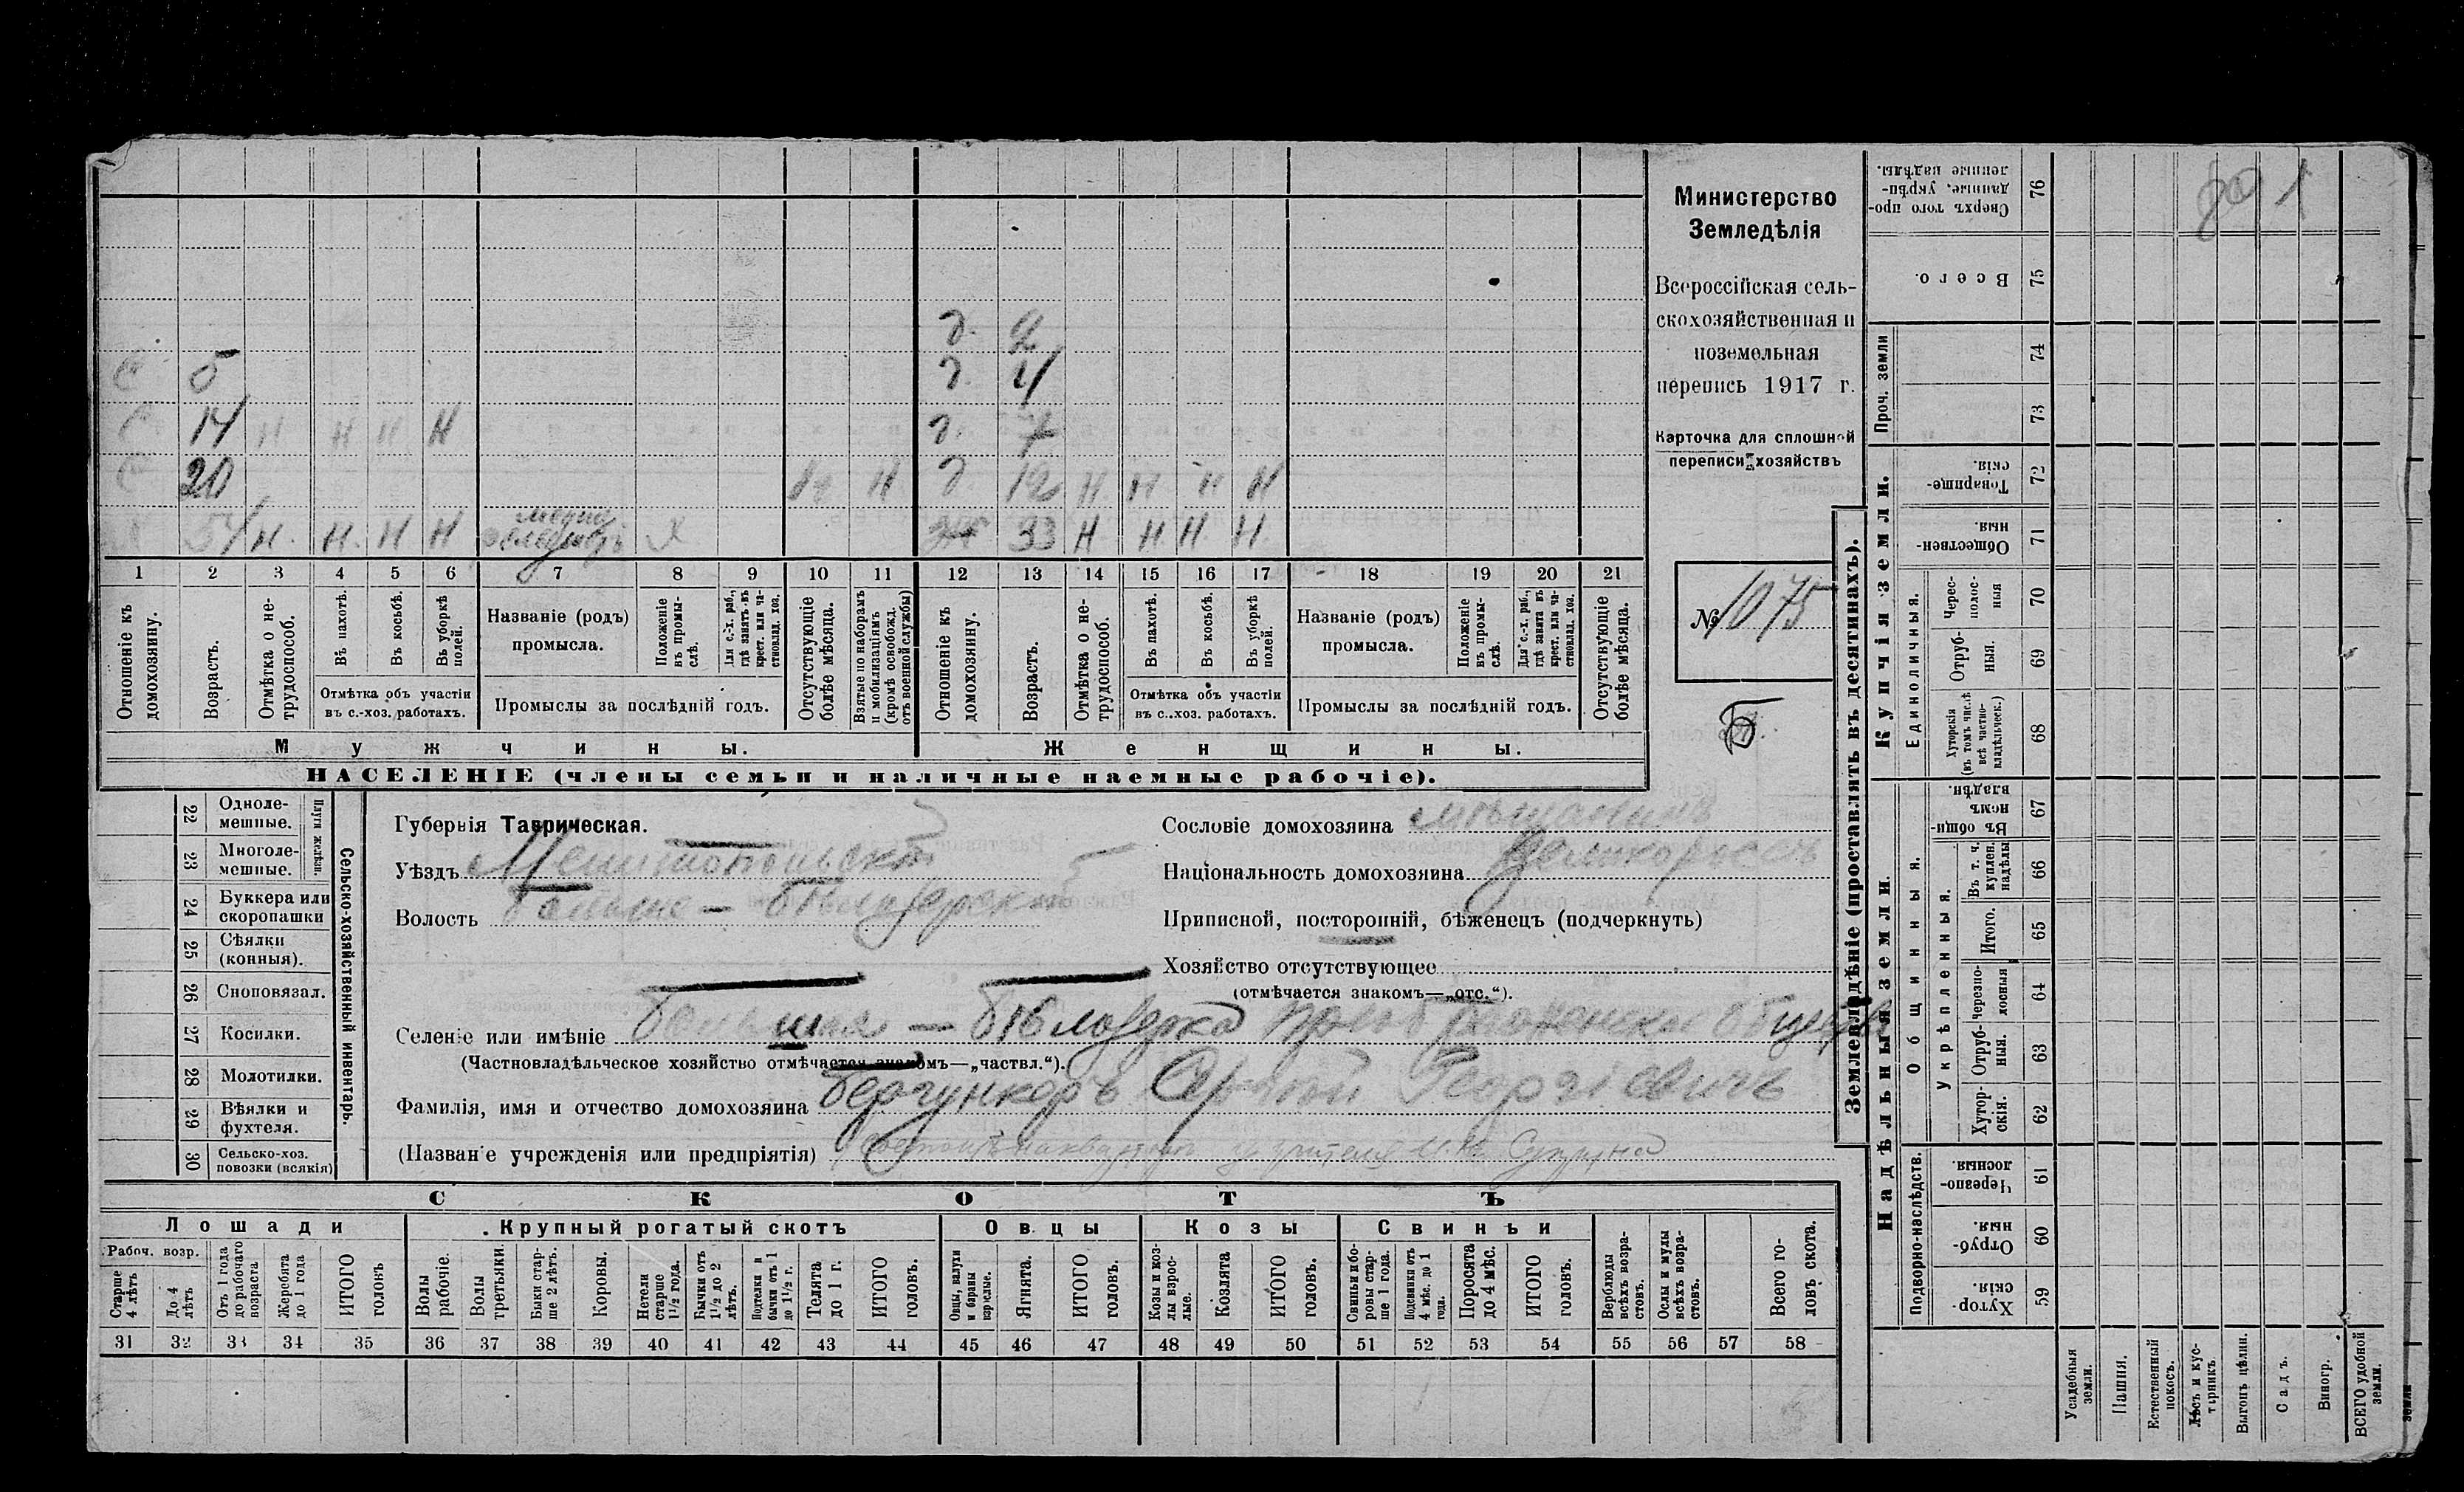 801
Министерство
Земледѣлія
Всероссійская сель-
скохозяйственная и
поземельная
перепись 1917 г.
Карточка для сплошной
переписи хозяйствъ
№ 1075
Б
д. 2
С 5 д. 4
С 14 н н н н д. 7
С 20 н д 12 н н н н
Х 54 н. н. н н Х 33 н н. н. н.
1 2 3 4 5 6 7 8 9 10 11 12 13 14 15 16 17 18 19 20 21
Отношеніе къ домохозяину.
Возрастъ.
Отмѣтка о не-трудоспособ.
Въ пахотѣ.
Въ косьбѣ.
Въ уборкѣ полей.
Отмѣтка объ участіи въ с.-хоз. работахъ.
Названіе (родъ) промысла.
Положеніе въ промы-слѣ.
Для с.-х. раб., гдѣ занятъ-въ крест. или ча-стновлад. хоз.
Промыслы за послѣдній годъ.
Отсутствующіе болѣе мѣсяца.
Взятые по наборамъ и мобилизаціямъ (кромѣ освобожд. отъ военной службы)
Отношеніе къ домохозяину.
Возрастъ.
Отмѣтка о не-трудоспособ.
Въ пахотѣ.
Въ косьбѣ.
Въ уборкѣ полей.
Отмѣтка объ участіи въ с.-хоз. работахъ.
Названіе (родъ) промысла.
Положеніе въ промы-слѣ.
Для с.-х. раб., гдѣ занята въ крест. или ча-стновлад. хоз.
Промыслы за послѣдній годъ.
Отсутствующіе болѣе мѣсяца.
Мужчины. Женщины.
НАСЕЛЕНІЕ (члены семьи и наличные наемные рабочіе).
Сельско-хозяйственный инвентарь.
Плуги желѣзн.
22 Одноле-мешные.
23 Многоле-мешные.
24 Буккера или скоропашки
25 Сѣялки (конныя).
26 Сноповязал.
27 Косилки.
28 Молотилки.
29 Вѣялки и фухтеля.
30 Сельско-хоз. повозки (всякія)
Губернія Таврическая.
Уѣздъ Мелитопольскій
Волость Больше-Бѣлозерская
Сословіе домохозяина мѣщанинъ
Національность домохозяина Великороссъ
Приписной, посторонній, бѣженецъ (подчеркнуть)
Хозяйство отсутствующее
(отмѣчается знакомъ—„отс.“).
Селеніе или имѣніе Большая-Бѣлозерка
(Частновладѣльческое хозяйство отмѣчается знакомъ—„частвл.“).
Фамилія, имя и отчество домохозяина Сергѣй Георгіевичъ
(Названіе учрежденія или предпріятія)
СКОТЪ
Лошади Крупный рогатый скотъ Овцы Козы Свиньи
Рабоч. возр.
Старше 4 лѣтъ
До 4 лѣтъ
Отъ 1 года до рабочаго возраста
Жеребята до 1 года
ИТОГО головъ
Волы рабочіе.
Волы третьяки.
Быки стар-ше 2 лѣтъ.
Коровы.
Нетели старше 1½ года.
Бычки отъ 1½ до 2 лѣтъ.
Подтелки и бычки отъ 1 до 1½ г.
Телята до 1 г.
ИТОГО головъ.
Овцы, валухи и бараны взрослые.
Ягнята.
ИТОГО головъ.
Козы и коз-лы взрос-лые.
Козлята
ИТОГО головъ.
Свиньи и бо-ровы стар-ше 1 года.
Подсвинки отъ 4 мѣс. до 1 года.
Поросята до 4 мѣс.
ИТОГО головъ.
Верблюды всѣхъ возра-стовъ.
Ослы и мулы всѣхъ возра-стовъ.
Всего го-ловъ скота.
31 32 33 34 35 36 37 38 39 40 41 42 43 44 45 46 47 48 49 50 51 52 53 54 55 56 57 58
Землевладѣніе (проставлять въ десятинахъ).
Сверхъ того про-данные, укрѣп-ленные надѣлы. 76
Всего. 75
Проч. земли 74 73
Купчія земли.
Товарище-скія. 72
Обществен-ныя 71
Единоличныя.
Черес-полос-ныя 70
Отруб-ныя. 69
Хуторскія (въ томъ числѣ всѣ частно-владѣльческ.) 68
Надѣльныя земли.
Общинныя.
Въ общи-номъ владѣн. 67
Укрѣпленныя.
Въ т. ч. куплен. надѣлы 66
Итого. 65
Черезпо-лосныя 64
Отруб-ныя. 63
Хутор-скія. 62
Подворно-наслѣдств.
Черезпо-лосныя. 61
Отруб-ныя. 60
Хутор-скія. 59
Усадебныя земли.
Пашня.
Естественный покосъ.
Лѣсъ и кус-тарникъ.
Выгонъ цѣлин.
Садъ.
Виногр.
ВСЕГО удобной земли.